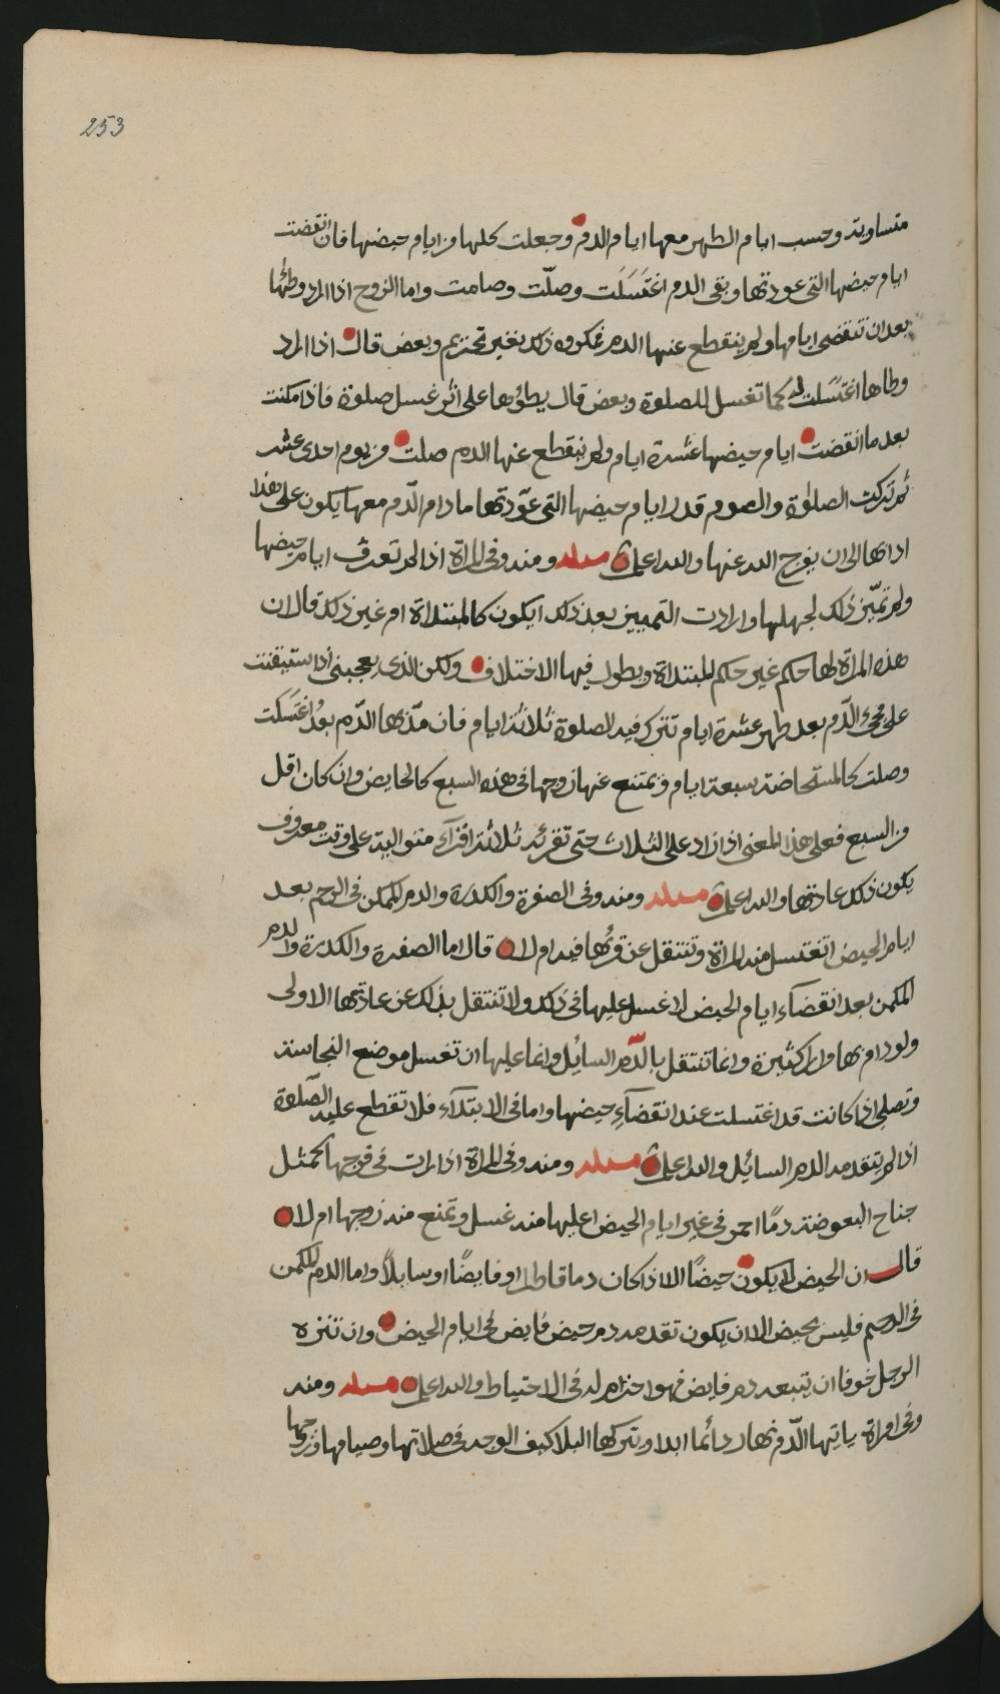 253
متساوية وحسب ايام الطهر معها ايام الدم وجعلت كلها من ايام حيضها فان انقضت
ايام حيضها التي عودتها وبقي الدم اغتسلت وصلّت وصامت واما الزوج اذا اراد وطئها
بعد ان تنقضي ايامها ولم ينقطع عنها الدم فمكروه ذلك بغير تحريم وبعض قال اذا اراد
وطاها اغتسلت له كما تغسل للصلوة وبعض قال يطؤها على اثر غسل صلوة فاذا مكثت
بعد ما انقضت ايام حيضها عشرة ايام ولم ينقطع عنها الدم صلت من يوم احدى عشر
ثم تركت الصلوة والصوم قدر ايام حيضها التي عوّدتها ما دام الدّم معها يكون على هذا
اداها الى ان يفرج الله عنها والله اعلم مسئلة ومنه وفي المراة اذا لم تعرف ايام حيضها
ولم تميّز ذلك لجهلها وارادت التمييز بعد ذلك ايكون كالمبتداة ام غير ذلك قال ان
هذه المراة لها حكم غير حكم المبتداة ويطول فيها الاختلاف ولكن الذي يعجبني اذا ستيقنت
على مجئ الدّم بعد طهر عشرة ايام تترك فيه الصلوة ثلاثة ايام فان مدّ بها الدّم بعدُ اغتسلت
وصلت كالمستحاضة سبعة ايام ويمتنع عنها زوجها في هذه السبع كالحايض وان كان اقل
من السبع فعلى هذا المعنى اذا زاد على الثلاث حتى تقر به ثلاثة اقرآء متوالية على وقت معروف
يكون ذلك عادتها والله اعلم مسئلة ومنه وفي الصفرة والكدرة والدم المكمن في الرحم بعد
ايام الحيض اتغتسل منه المراة وتنتقل عن قرئها فيه ام لا قال اما الصفرة والكدرة والدم
المكمن بعد انقضآء ايام الحيض لا غسل عليها في ذلك ولا تنتقل بذلك عن عادتها الاولى
ولو دام بها مرارا كثيرة وانما تنتقل بالدّم السائل وانما عليها ان تغسل موضع النجاسة
وتصلي اذا كانت قد اغتسلت عند انقضآءِ حيضها واما في الابتدآء فلا تقطع عليه الصّلوة
اذا لم يتقدمه الدم السائل والله اعلم مسئلة ومنه وفي المراة اذا رات في فرجها كمثل
جناح البعوضة دمًا احمر في غير ايام الحيض اعليها منه غسل وتمنع منه زوجها ام لا
قال ان الحيض لا يكون حيضًا الا اذا كان دما قاطرا او فايضًا او سايلاً واما الدم المكمن
في الرحم فليس بحيض الا ان يكون تقدمه دم حيض فايض في ايام الحيض وان تنزه
الرجل خوفا ان يتبعه دم فايض فهو احزم له في الاحتياط والله اعلم مسئلة ومنه
وفي امراة ياتيها الدّم نهارا دائما ابدا ويتركها اليلا كيف الوجه في صلاتها وصيامها وزوجها